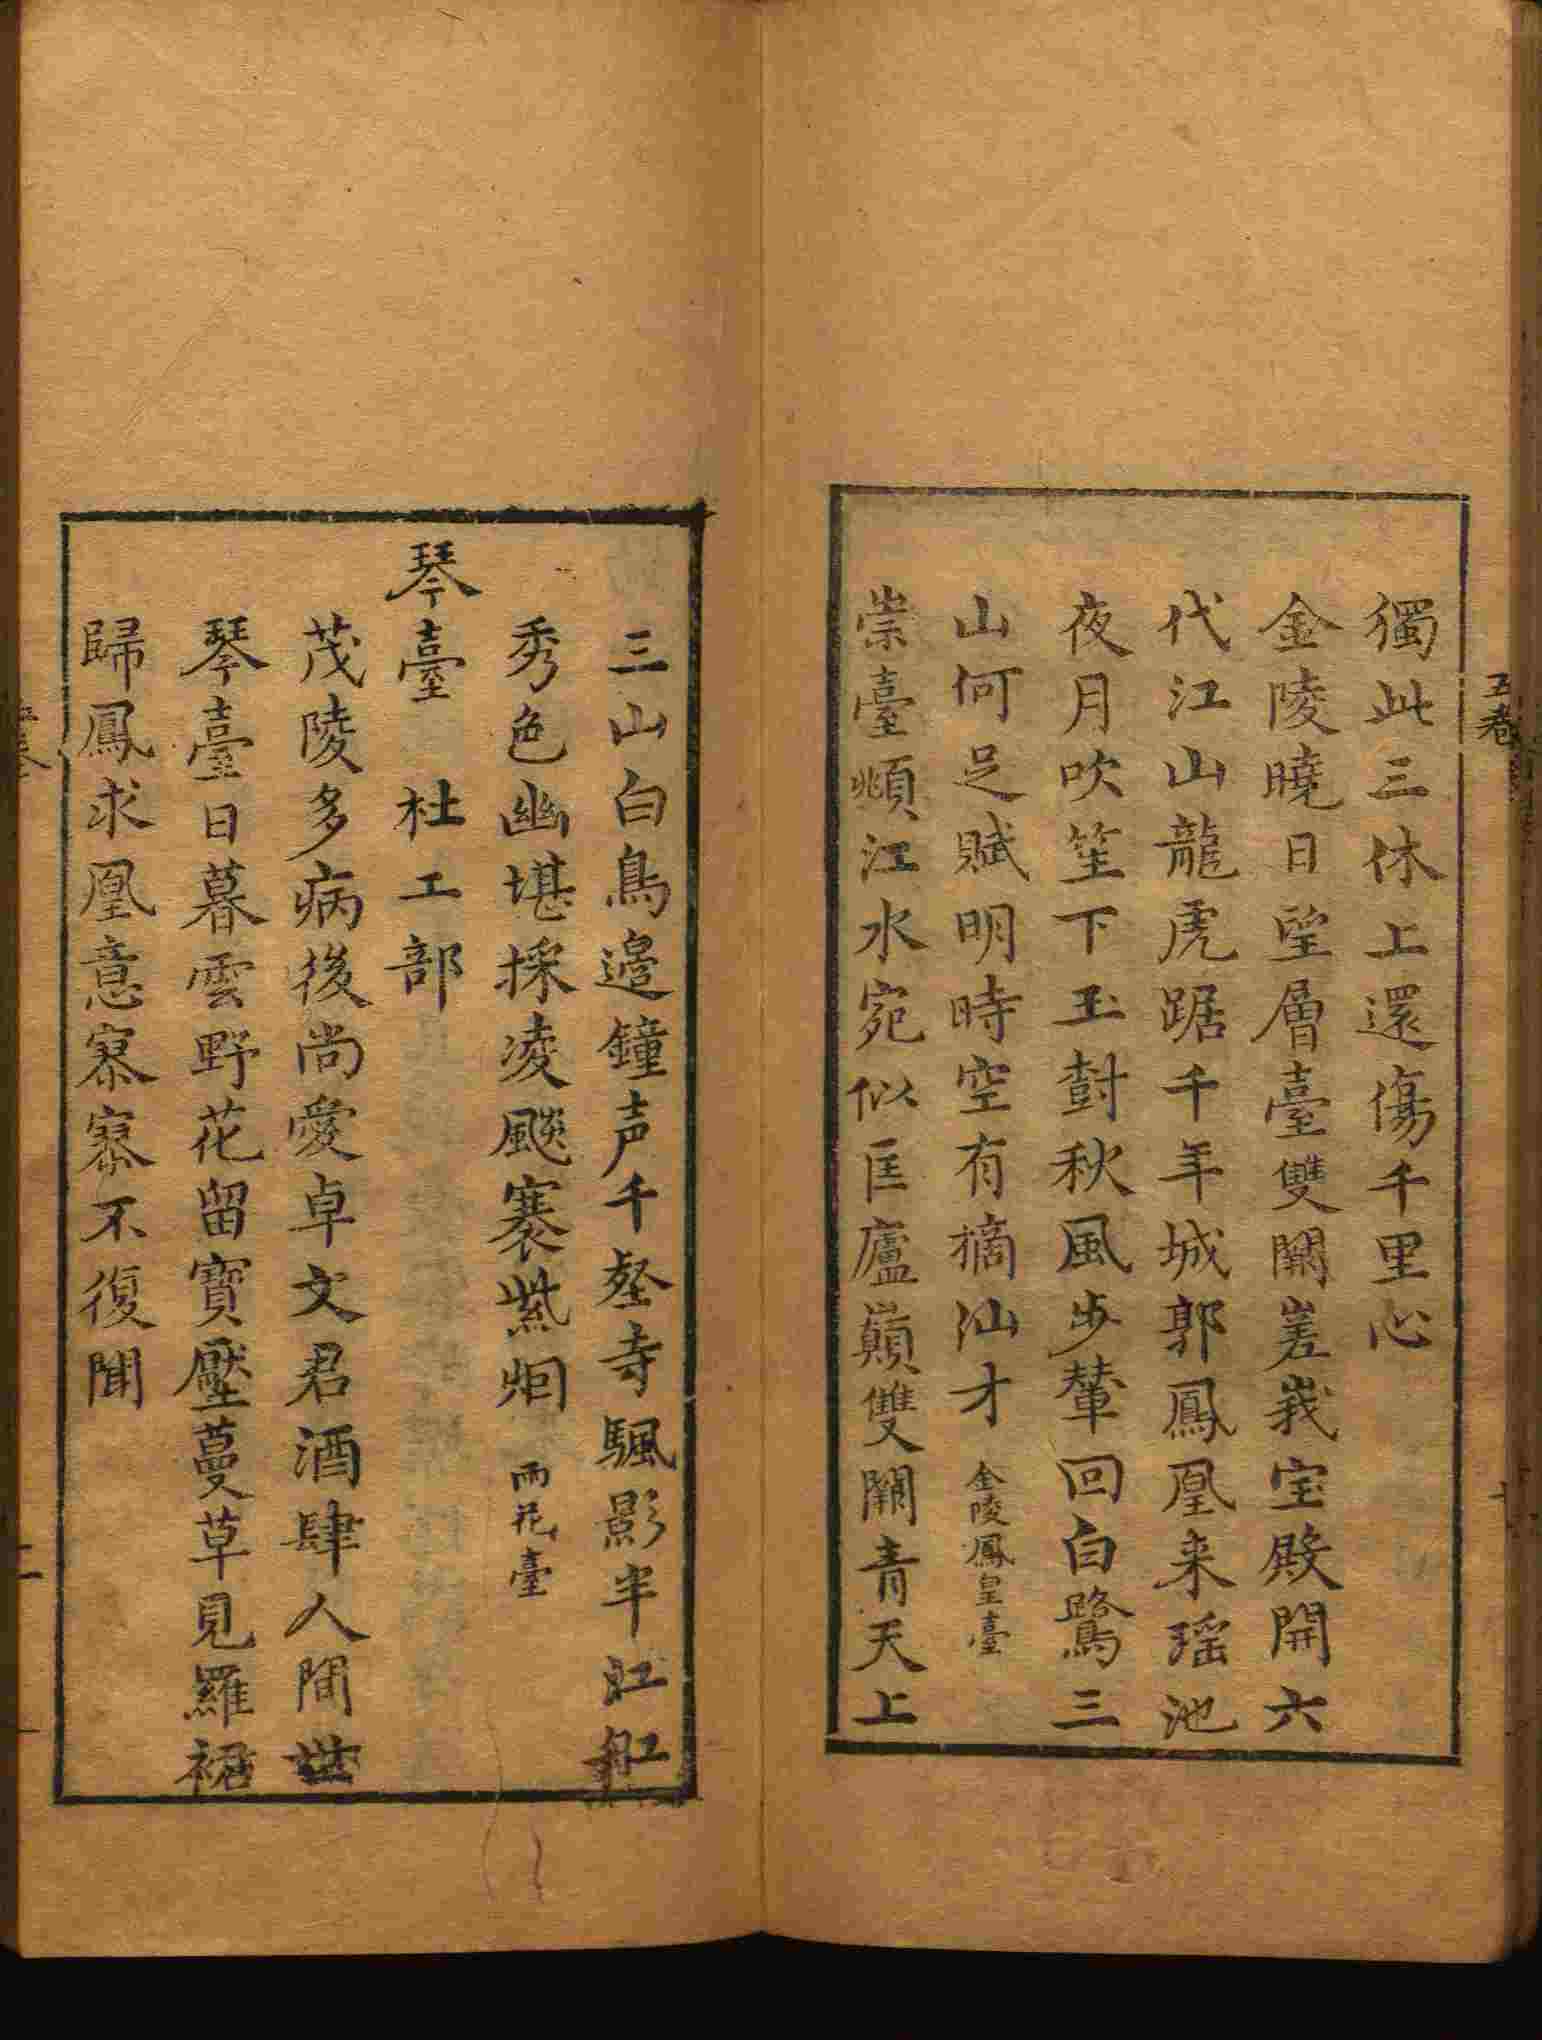 獨此三休上還傷千里心
金陵曉日望層臺雙闕嵳峩宝殿開六
代江山龍虎踞千年城郭鳳凰来瑶池
夜月吹笙下玉𡔷秋風步輦回白鷺三
山何足賦明時空有摛汕才 金陵鳳皇臺
崇臺頫江水宛似匡廬巔雙闕青天上
三山白鳥邉鐘声千壑寺颿影半江舡
秀色幽堪採凌飈褰紫烟 雨花臺
琴臺 杜工部
茂陵多病後尚愛卓文君酒肆人間世
琴臺日暮雲野花留寶靨蔓草見羅裙
歸鳳求凰意寥寥不復聞
五卷